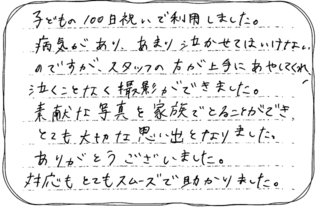 子どもの100日祝いで利用しました。
病気があり、あまり泣かせてはいけない
のですが、スタッフの方が上手にあやしてくれ、
泣くことなく撮影ができました。
素敵な写真を家族でとることができ、
とても大切な思い出となりました。
ありがとうございました。
対応もとてもスムーズで助かりました。